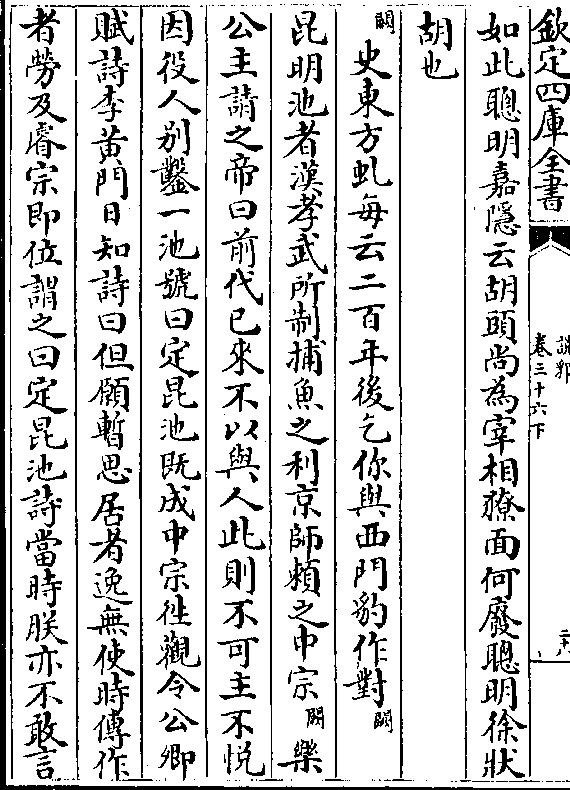 欽定四庫全書
說郛
卷三十六下
如此聰明嘉隱云胡頭尚為宰相獠面何廢聰明徐狀
胡也
闕史東方虬每云二百年後乞你與西門豹作對闕
昆明池者漢孝武所制捕魚之利京師頼之中宗闕樂
公主請之帝曰前代已來不以與人此則不可主不悦
因役人别鑿一池號曰定昆池既成中宗徃觀令公卿
賦詩李黄門日知詩曰但願暫思居者逸無使時傳作
者勞及睿宗即位謂之曰定昆池詩當時朕亦不敢言